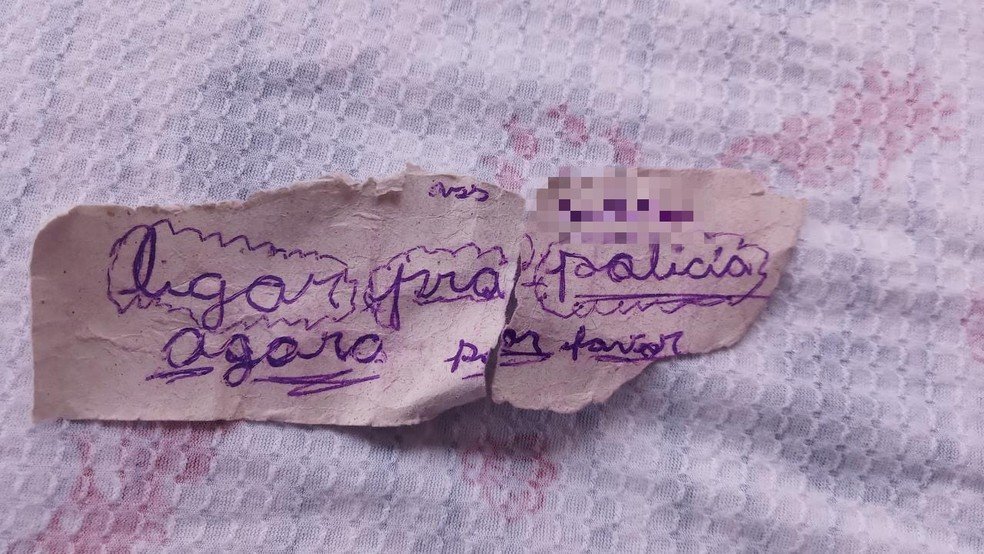 ligar pra policia
agora por favor